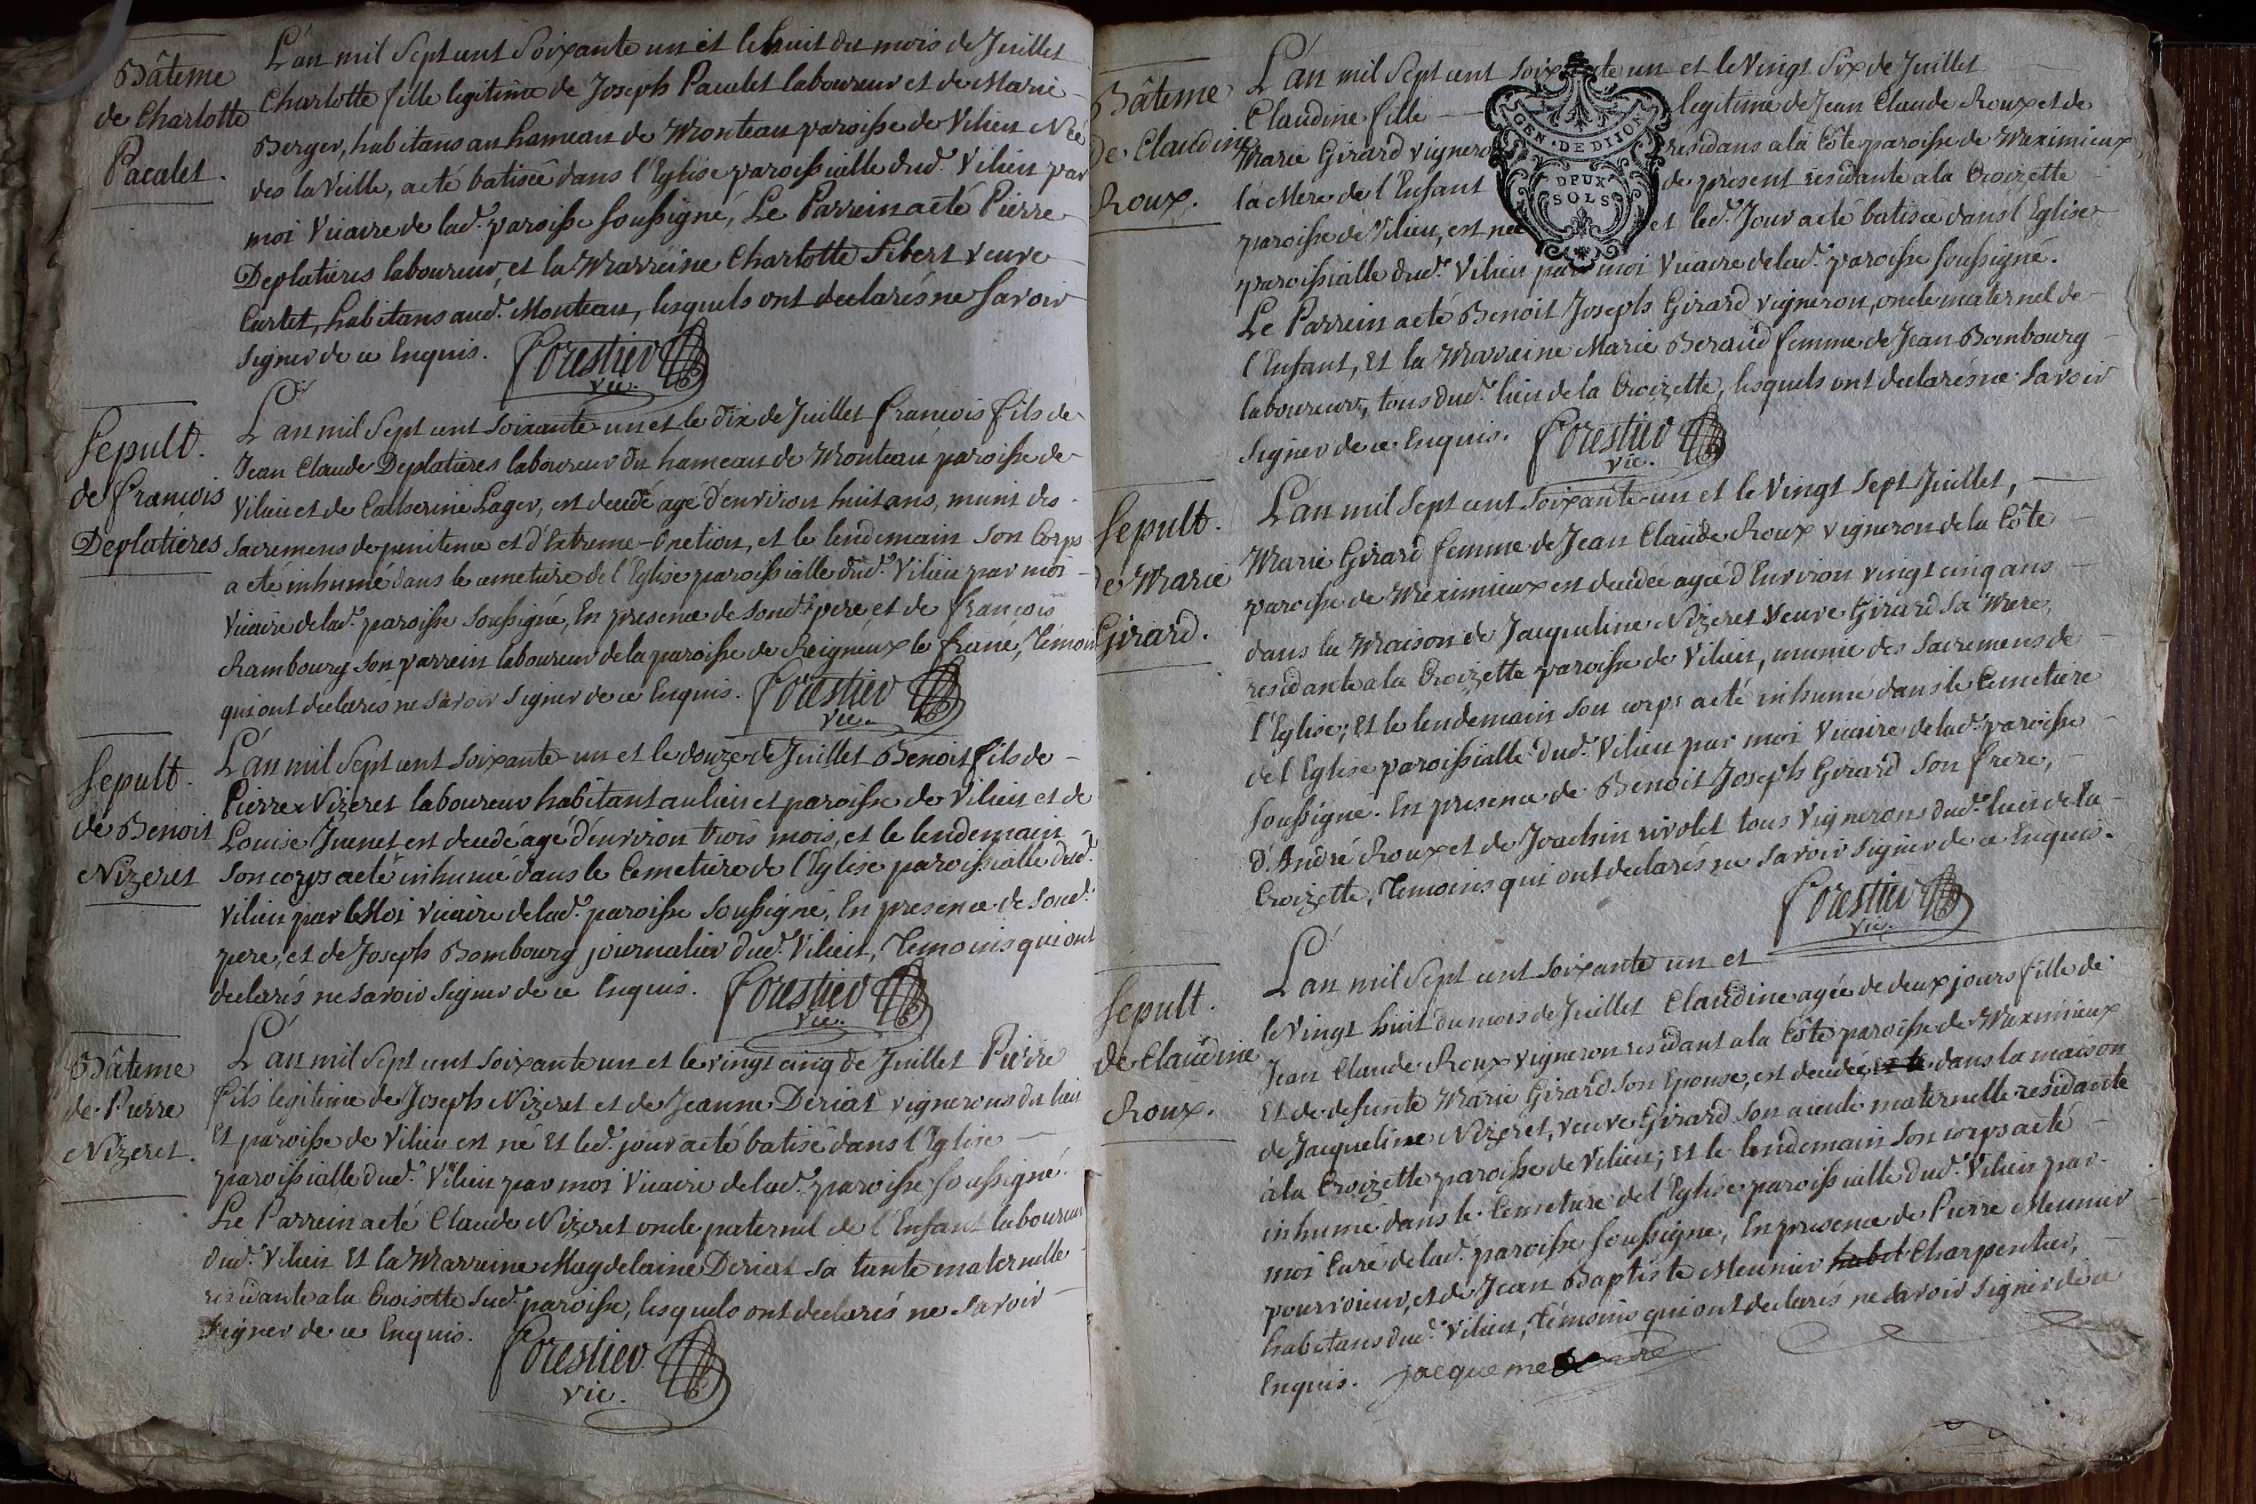 Bâteme
de Charlotte
Pacalet.
L'an mil Sept cent Soixante un et le huit du mois de Juillet
Charlotte fille legitime de Joseph Pacalet laboureur et de Marie
Berger, habitans au hameau de Monteau paroisse de Vilieu Née
des la Veille, a eté batisée dans l'Eglise paroissialle dud. Vilieu par
moi Vicaire de lad. paroisse soussigné, Le Parrein a eté Pierre
Deplatieres laboureur, et la Marreine Charlotte Sibert veuve
Curtet, habitans aud. Monteau, lesquels ont declarés ne savoir
signer de ce Enquis. Forestier
vic.
Sepult.
de François
Deplatieres
L'an mil Sept cent soixante un et le Dix de Juillet François fils de
Jean Claude Deplatieres laboureur du hameau de Monteau paroisse de
Vilieu et de Catherine Lager, est decedé agé d'environ huit ans, muni des
sacremens de penitence et d'Extreme-Onction, et le lendemain son Corps
a eté inhumé dans le cemetiere de l'Eglise paroissialle dud. Vilieu par moi
Vicaire de lad. paroisse soussigné, En presence de sond. pere et de François
Rambourg son parrein laboureur de la paroisse de Reigneux le franc, Témoins
qui ont declarés ne savoir signer de ce Enquis. Forestier
vic.
Sepult.
de Benoit
Nizeret
L'an mil Sept cent soixante un et le douze de Juillet Benoit fils de
Pierre Nizeret laboureur habitant au lieu et paroisse de Vilieu et de
Louise Juenet est decedé agé d'environ trois mois, et le lendemain
son corps a eté inhumé dans le Cemetiere de l'Eglise paroissialle dud.
Vilieu par Moi Vicaire de lad. paroisse soussigné, En presence de sond.
pere, et de Joseph Bombourg journalier dud. Vilieu, Temoins qui ont
declarés ne savoir signer de ce Enquis. Forestier
vic.
Bâteme
de Pierre
Nizeret.
L'an mil Sept cent soixante un et le vingt cinq de Juillet Pierre
fils legitime de Joseph Nizeret et de Jeanne Deriat vignerons du lieu
Et paroisse de Vilieu est né Et led. jour a eté batisé dans l'Eglise
paroissialle dud. Vilieu par moi Vicaire de lad. paroisse soussigné.
Le Parrein a eté Claude Nizeret oncle paternel de l'Enfant laboureur
dud. Vilieu Et la Marreine Magdelaine Deriat sa tante maternelle
residante a la Croisette sud. paroisse, lesquels ont declarés ne savoir
signer de ce Enquis. Forestier
vic.
Bâteme
de Claudine
Roux.
GEN · DE DIJON
DEUX
SOLS
L'an mil Sept cent soixante un et le Vingt Six de Juillet
Claudine fille legitime de Jean Claude Roux et de
Marie Girard vignerons residans a la Côte paroisse de Meximieux
la Mere de l'Enfant de present residante a la Croizette
paroisse de Vilieu, est née et led. Jour a eté batisée dans l'Eglise
paroissialle dud. Vilieu par moi Vicaire de lad. paroisse soussigné.
Le Parrein a eté Benoit Joseph Girard vigneron, oncle maternel de
l'Enfant, Et la Marreine Marie Beraud femme de Jean Bombourg
laboureur, tous dud. lieu de la Croizette, lesquels ont declarés ne savoir
signer de ce Enquis. Forestier
vic.
Sepult.
de Marie
Girard.
L'an mil Sept cent soixante un et le Vingt Sept Juillet,
Marie Girard femme de Jean Claude Roux vigneron de la Côte
paroisse de Meximieux est decedée agée d'Environ vingt cinq ans
dans la Maison de Jacqueline Nizeret Veuve Girard sa Mere,
residante a la Croizette paroisse de Vilieu, munie des sacremens de
l'Eglise; Et le lendemain son corps a eté inhumé dans le Cemetiere
de l'Eglise paroissialle dud. Vilieu par moi Vicaire de lad. paroisse
soussigné. En presence de Benoit Joseph Girard son frere,
d'André Roux et de Joachin rivolet tous Vignerons dud. lieu de la
Croizette, Temoins qui ont declarés ne savoir signer de ce Enquis.
Forestier
vic.
Sepult.
de Claudine
Roux.
L'an mil Sept cent soixante un et
le Vingt huit du mois de Juillet Claudine agée de deux jours fille de
Jean Claude Roux vigneron residant a la Côte paroisse de Meximieux
Et de defunte Marie Girard son Epouse, est decedée et le dans la maison
de Jacqueline Nizeret, veuve Girard son aieule maternelle residante
a la Croizette paroisse de Vilieu; Et le lendemain son corps a eté
inhumé dans le Cemetiere de l'Eglise paroissialle dud. Vilieu par
moi Curé de lad. paroisse soussigné, En presence de Pierre Meunier
pourvoieur, et de Jean Baptiste Meunier habit Charpentier,
habitans dud. Vilieu, Témoins qui ont declarés ne savoir signer de ce
Enquis. jacquemet